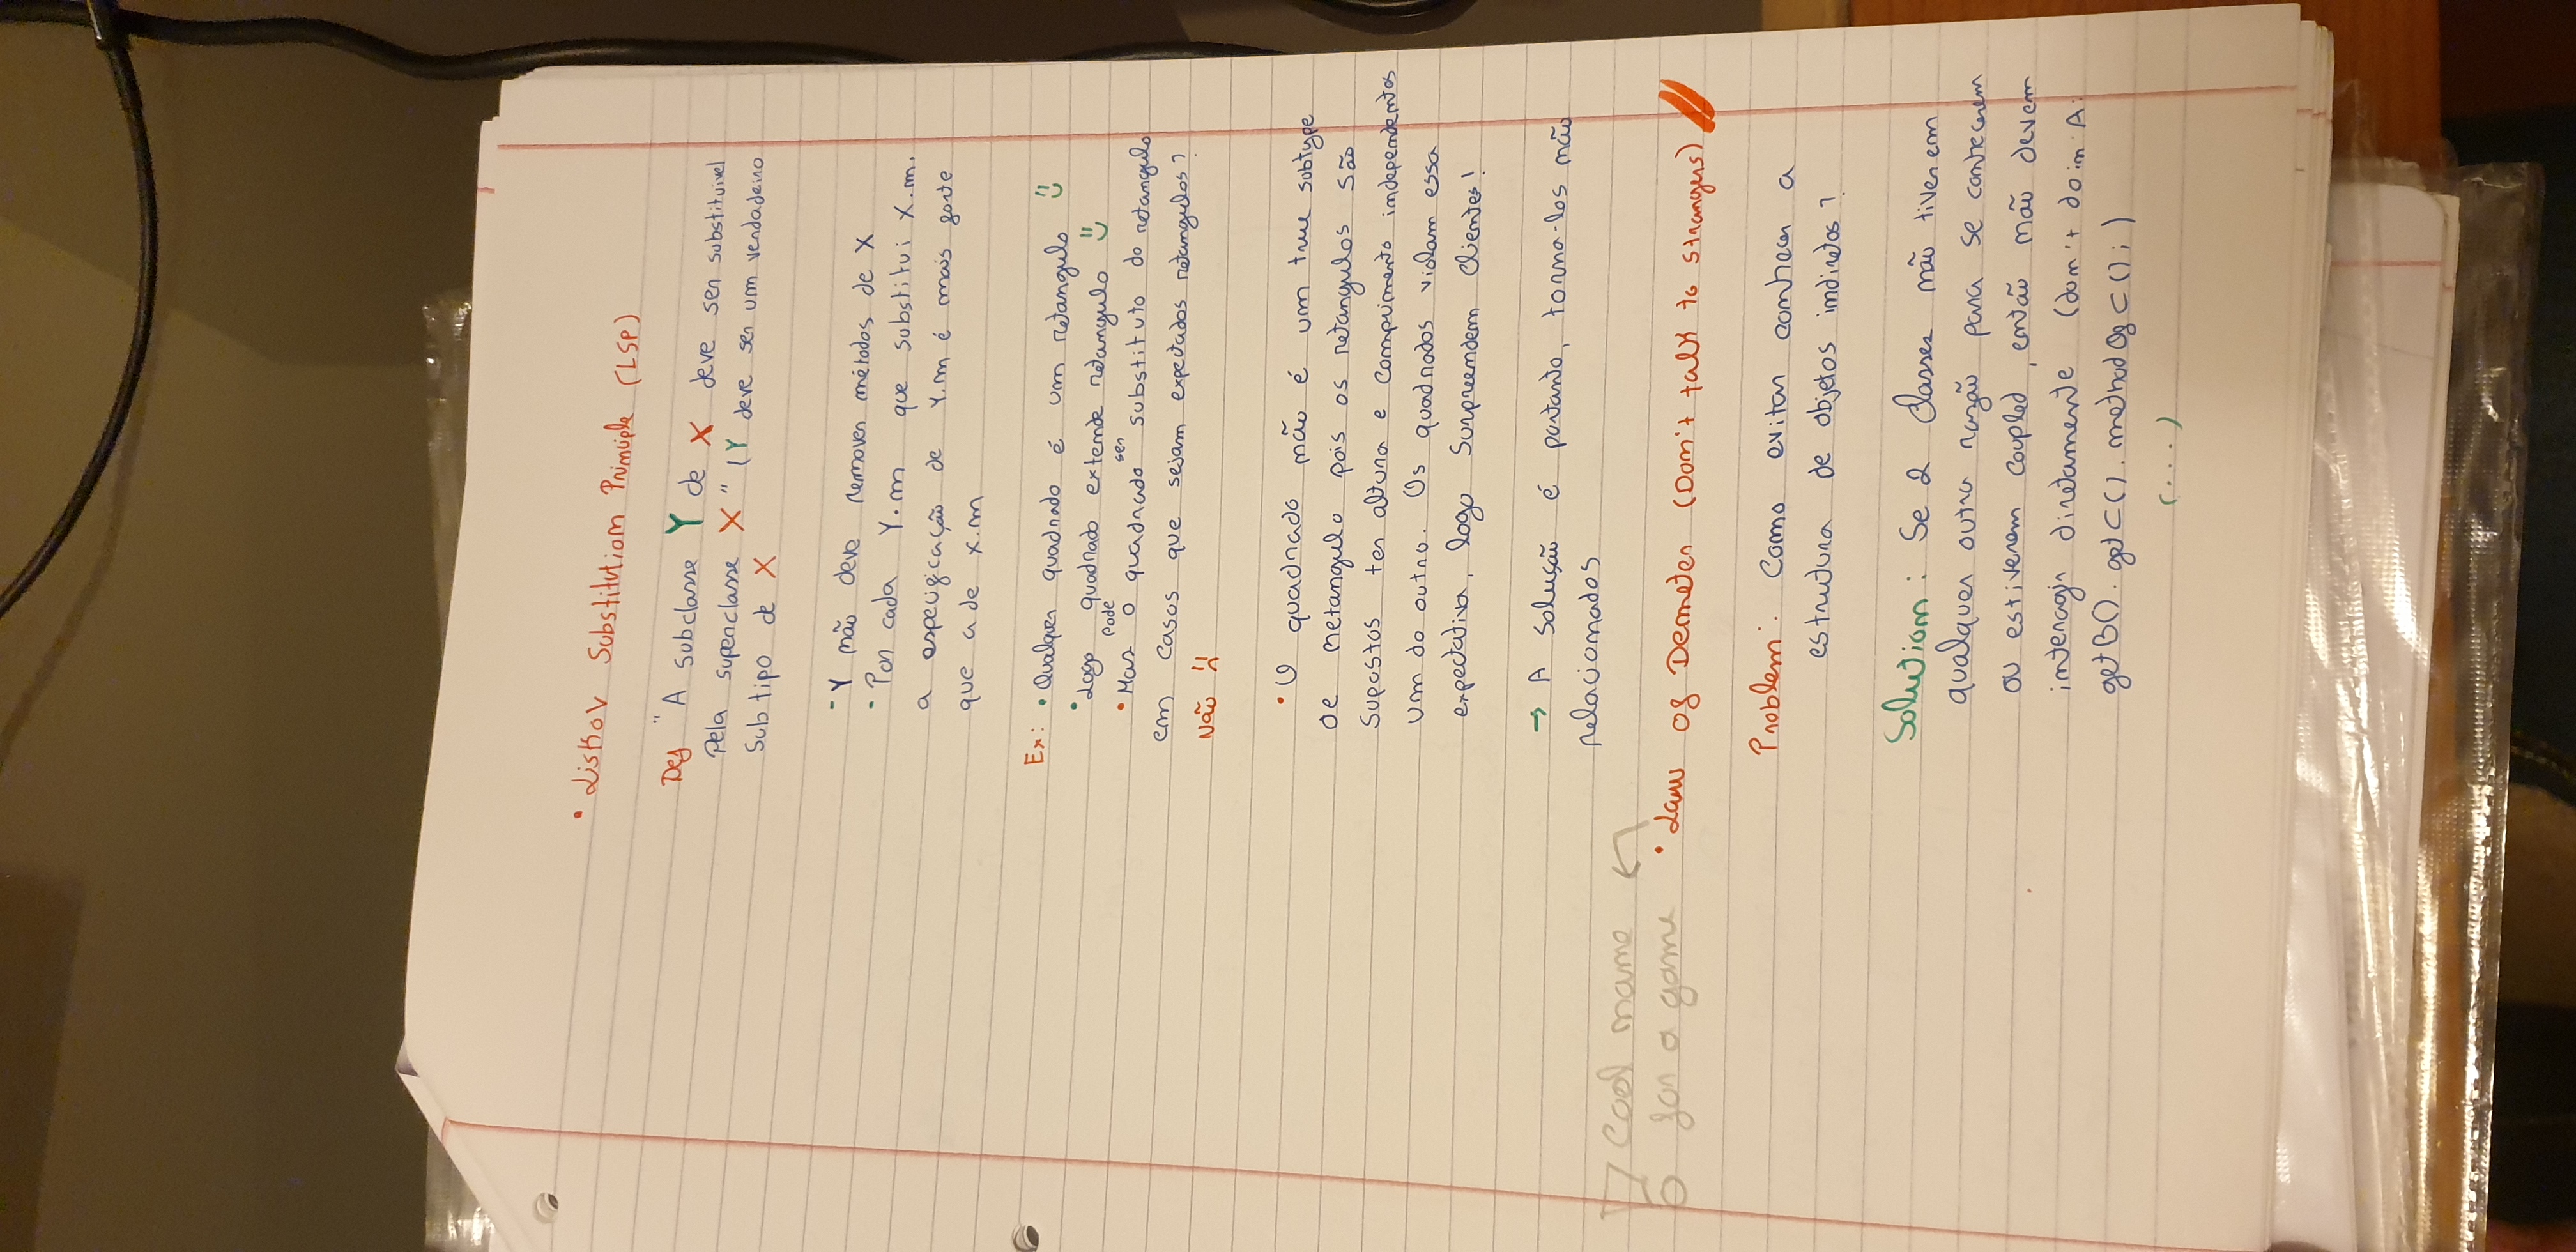 • Liskov Substitution Principle (LSP)
Def "A subclasse Y de X deve ser substituivel
pela superclasse X" (Y deve ser um verdadeiro
Subtipo de X
- Y não deve remover métodos de X
- Por cada Y.m que substitui X.m.
a especificação de Y.m é mais forte
que a de X.m
Ex: • Qualquer quadrado é um retangulo
• Logo quadrado extende retangulo
• Mas pode o quadrado ser substituto do retangulo
em casos que sejam expectados retangulos?
Não
• O quadrado não é um true subtype
de retangulo pois os retangulos são
supostos ter altura e comprimento independentes
um do outro. Os quadrados violam essa
expectativa, logo surpreendem clientes!
→ A solução é portanto, torna-los não
relacionados
Cool name ←
for a game
• Law of Demeter (Don't talk to strangers)
Problem: Como evitar conhecer a
estrutura de objetos indiretos?
Solution: Se 2 classes não tiverem
qualquer outra razão para se conhecerem
ou estiverem coupled, então não devem
interagir diretamente (don't do in A:
getB().getC().methodOfC();)
(...)